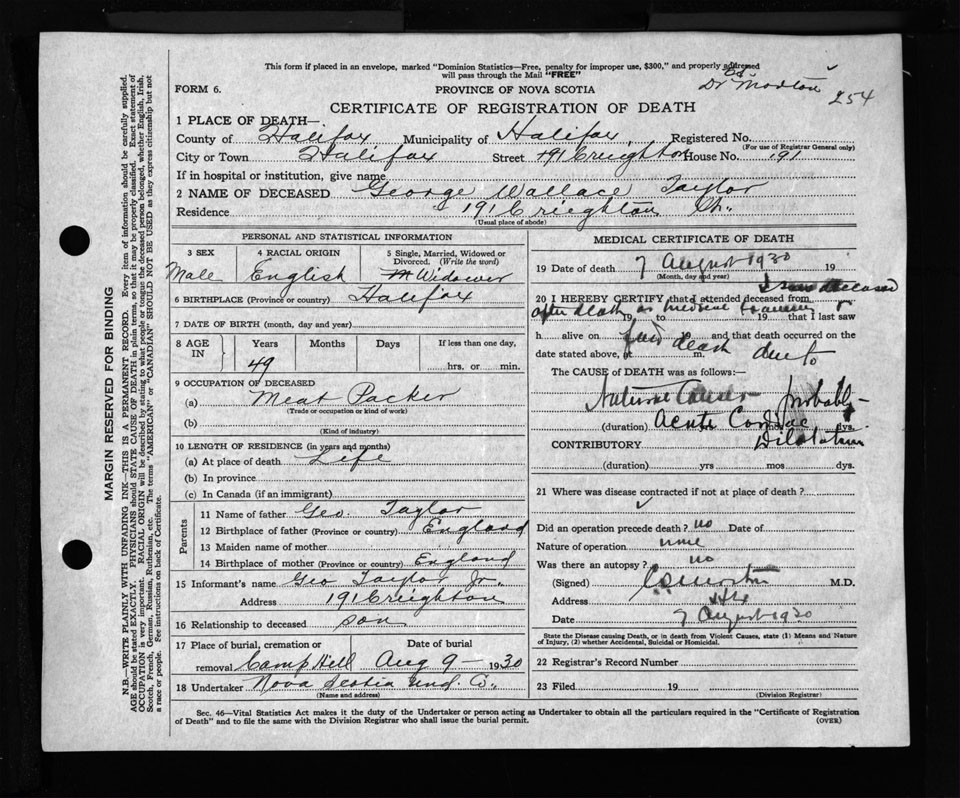 This form if placed in an envelope, marked "Dominion Statistics—Free, penalty for improper use, $300," and properly addressed
will pass through the Mail "FREE"
FORM 6.
PROVINCE OF NOVA SCOTIA
Dr
254
CERTIFICATE OF REGISTRATION OF DEATH
1 PLACE OF DEATH—
County of Halifax Municipality of Halifax Registered No.
(For use of Registrar General only)
City or Town Halifax Street 191 Creighton House No. 191
If in hospital or institution, give name
2 NAME OF DECEASED George Wallace Taylor
Residence 191 Creighton
(Usual place of abode)
PERSONAL AND STATISTICAL INFORMATION
3 SEX 4 RACIAL ORIGIN 5 Single, Married, Widowed or
Divorced. (Write the word)
Male English Widower
6 BIRTHPLACE (Province or country) Halifax
7 DATE OF BIRTH (month, day and year)
8 AGE IN Years Months Days If less than one day,
49 hrs. or min.
9 OCCUPATION OF DECEASED
(a) Meat Packer
(Trade or occupation or kind of work)
(b)
(Kind of industry)
10 LENGTH OF RESIDENCE (in years and months)
(a) At place of death Life
(b) In province
(c) In Canada (if an immigrant)
Parents
11 Name of father Geo. Taylor
12 Birthplace of father (Province or country) England
13 Maiden name of mother
14 Birthplace of mother (Province or country) England
15 Informant's name Geo Taylor Jr.
Address 191 Creighton
16 Relationship to deceased son
17 Place of burial, cremation or Date of burial
removal Camp Hill Aug 9 — 1930
18 Undertaker Nova Scotia Und. C.
(Name and address)
MEDICAL CERTIFICATE OF DEATH
19 Date of death 7 August 1930 19
(Month, day and year)
I saw deceased
20 I HEREBY CERTIFY that I attended deceased from
after death as medical Examiner
19 to 19 that I last saw
h alive on 19, and that death occurred on the
date stated above, at m. death due to
The CAUSE of DEATH was as follows:—
Natural Causes probably
(duration) Acute Cardiac dys.
CONTRIBUTORY Dilatation
(duration) yrs mos dys.
21 Where was disease contracted if not at place of death?
Did an operation precede death? no Date of
Nature of operation none
Was there an autopsy? no
(Signed) M.D.
Address Hfx
Date 7 August 1930
State the Disease causing Death, or in death from Violent Causes, state (1) Means and Nature
of Injury, (2) whether Accidental, Suicidal or Homicidal.
22 Registrar's Record Number
23 Filed 19
(Division Registrar)
Sec. 46—Vital Statistics Act makes it the duty of the Undertaker or person acting as Undertaker to obtain all the particulars required in the "Certificate of Registration
of Death" and to file the same with the Division Registrar who shall issue the burial permit. (OVER)
MARGIN RESERVED FOR BINDING
N.B.—WRITE PLAINLY WITH UNFADING INK—THIS IS A PERMANENT RECORD. Every item of information should be carefully supplied.
AGE should be stated EXACTLY. PHYSICIANS should STATE CAUSE OF DEATH in plain terms, so that it may be properly classified. Exact statement of
OCCUPATION is very important. RACIAL ORIGIN will be described by stating to what people or tongue the deceased person belonged, whether English, Irish,
Scotch, French, German, Russian, Ruthenian, etc. The terms "AMERICAN" or "CANADIAN" SHOULD NOT BE USED as they express citizenship but not
a race or people. See instructions on back of Certificate.